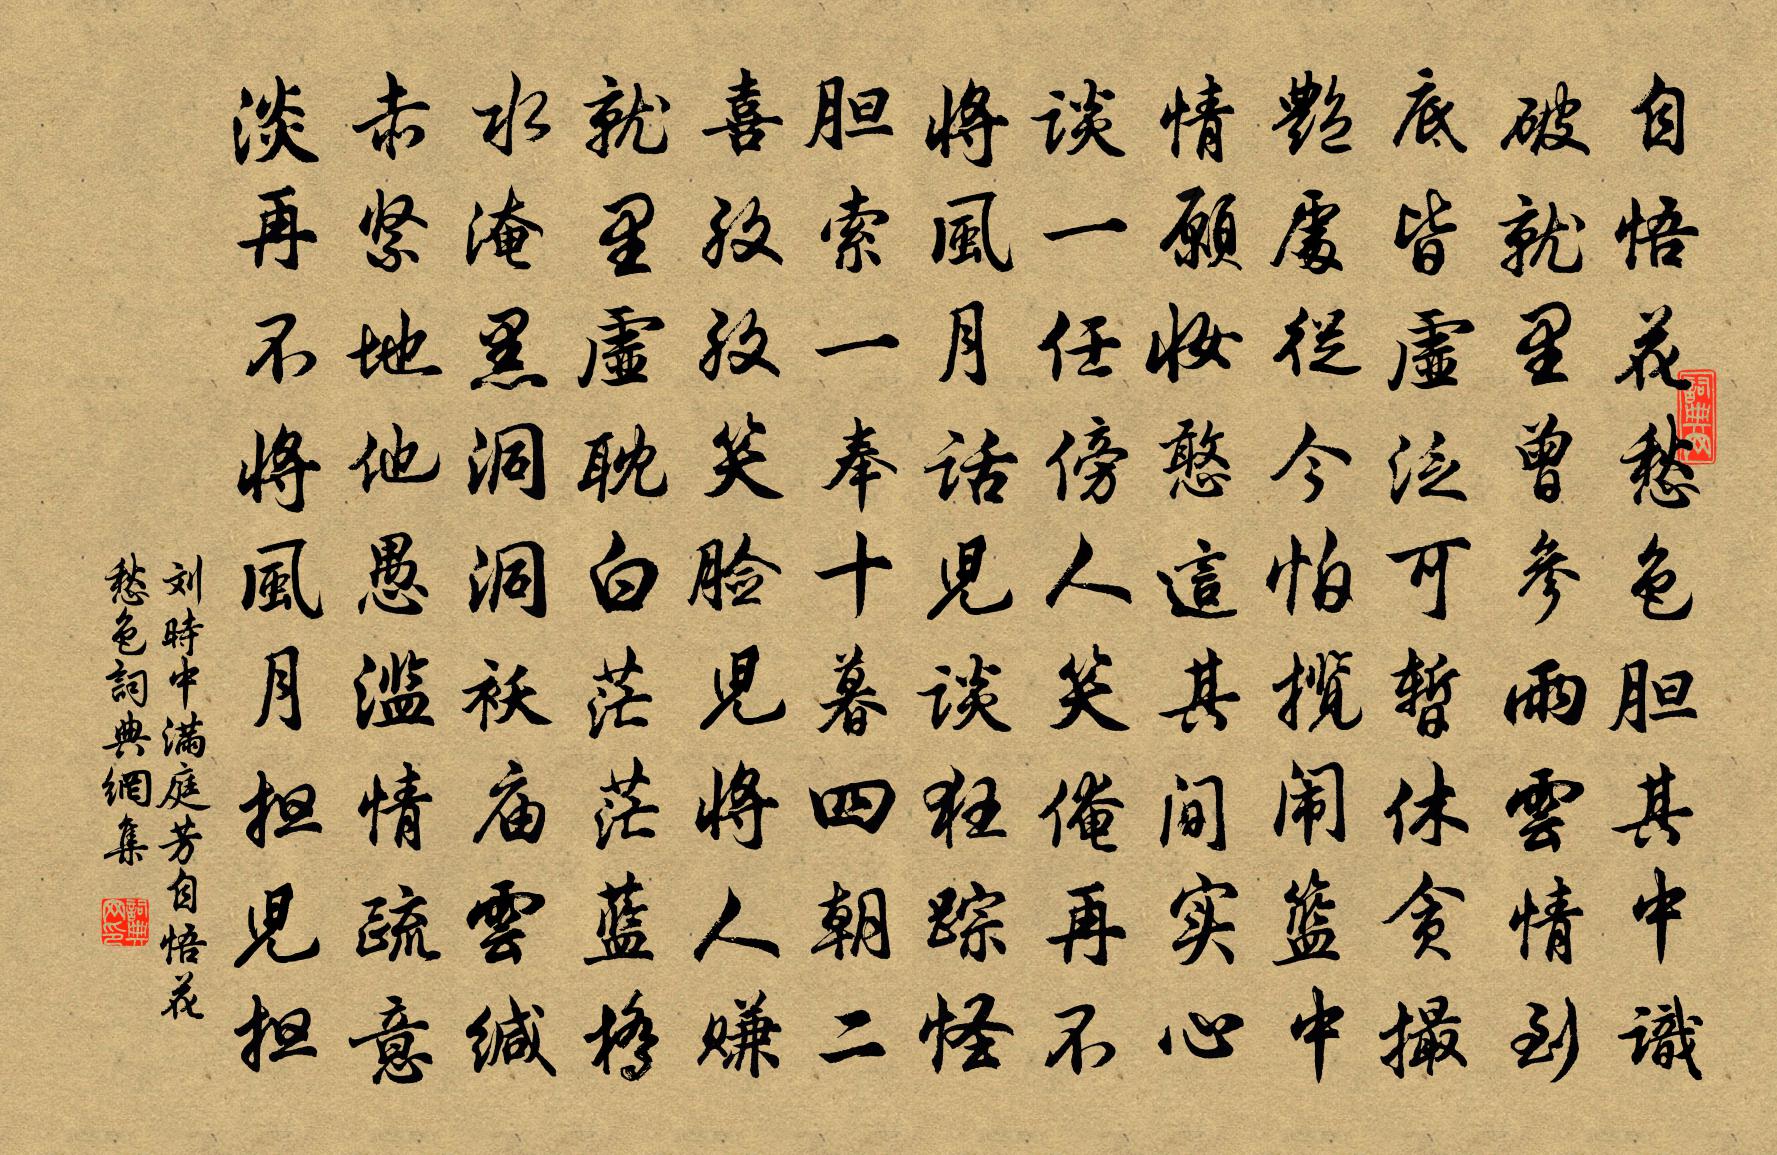 自悟花愁色胆其中識
破就里曾參雨雲情到
底皆虛泛可暫休貪撮
艷處從今怕攬闹籃中
情願妝憨這其间实心
谈一任傍人笑俺再不
將風月话児谈狂踪怪
胆索一奉十暮四朝二
喜孜孜笑脸児將人赚
就里虛耽白茫茫蓝桥
水淹黑洞洞袄庙雲缄
赤紧地他愚滥情疏意
淡再不將風月担児担
刘時中满庭芳自悟花
愁色詞典網集
詞典网